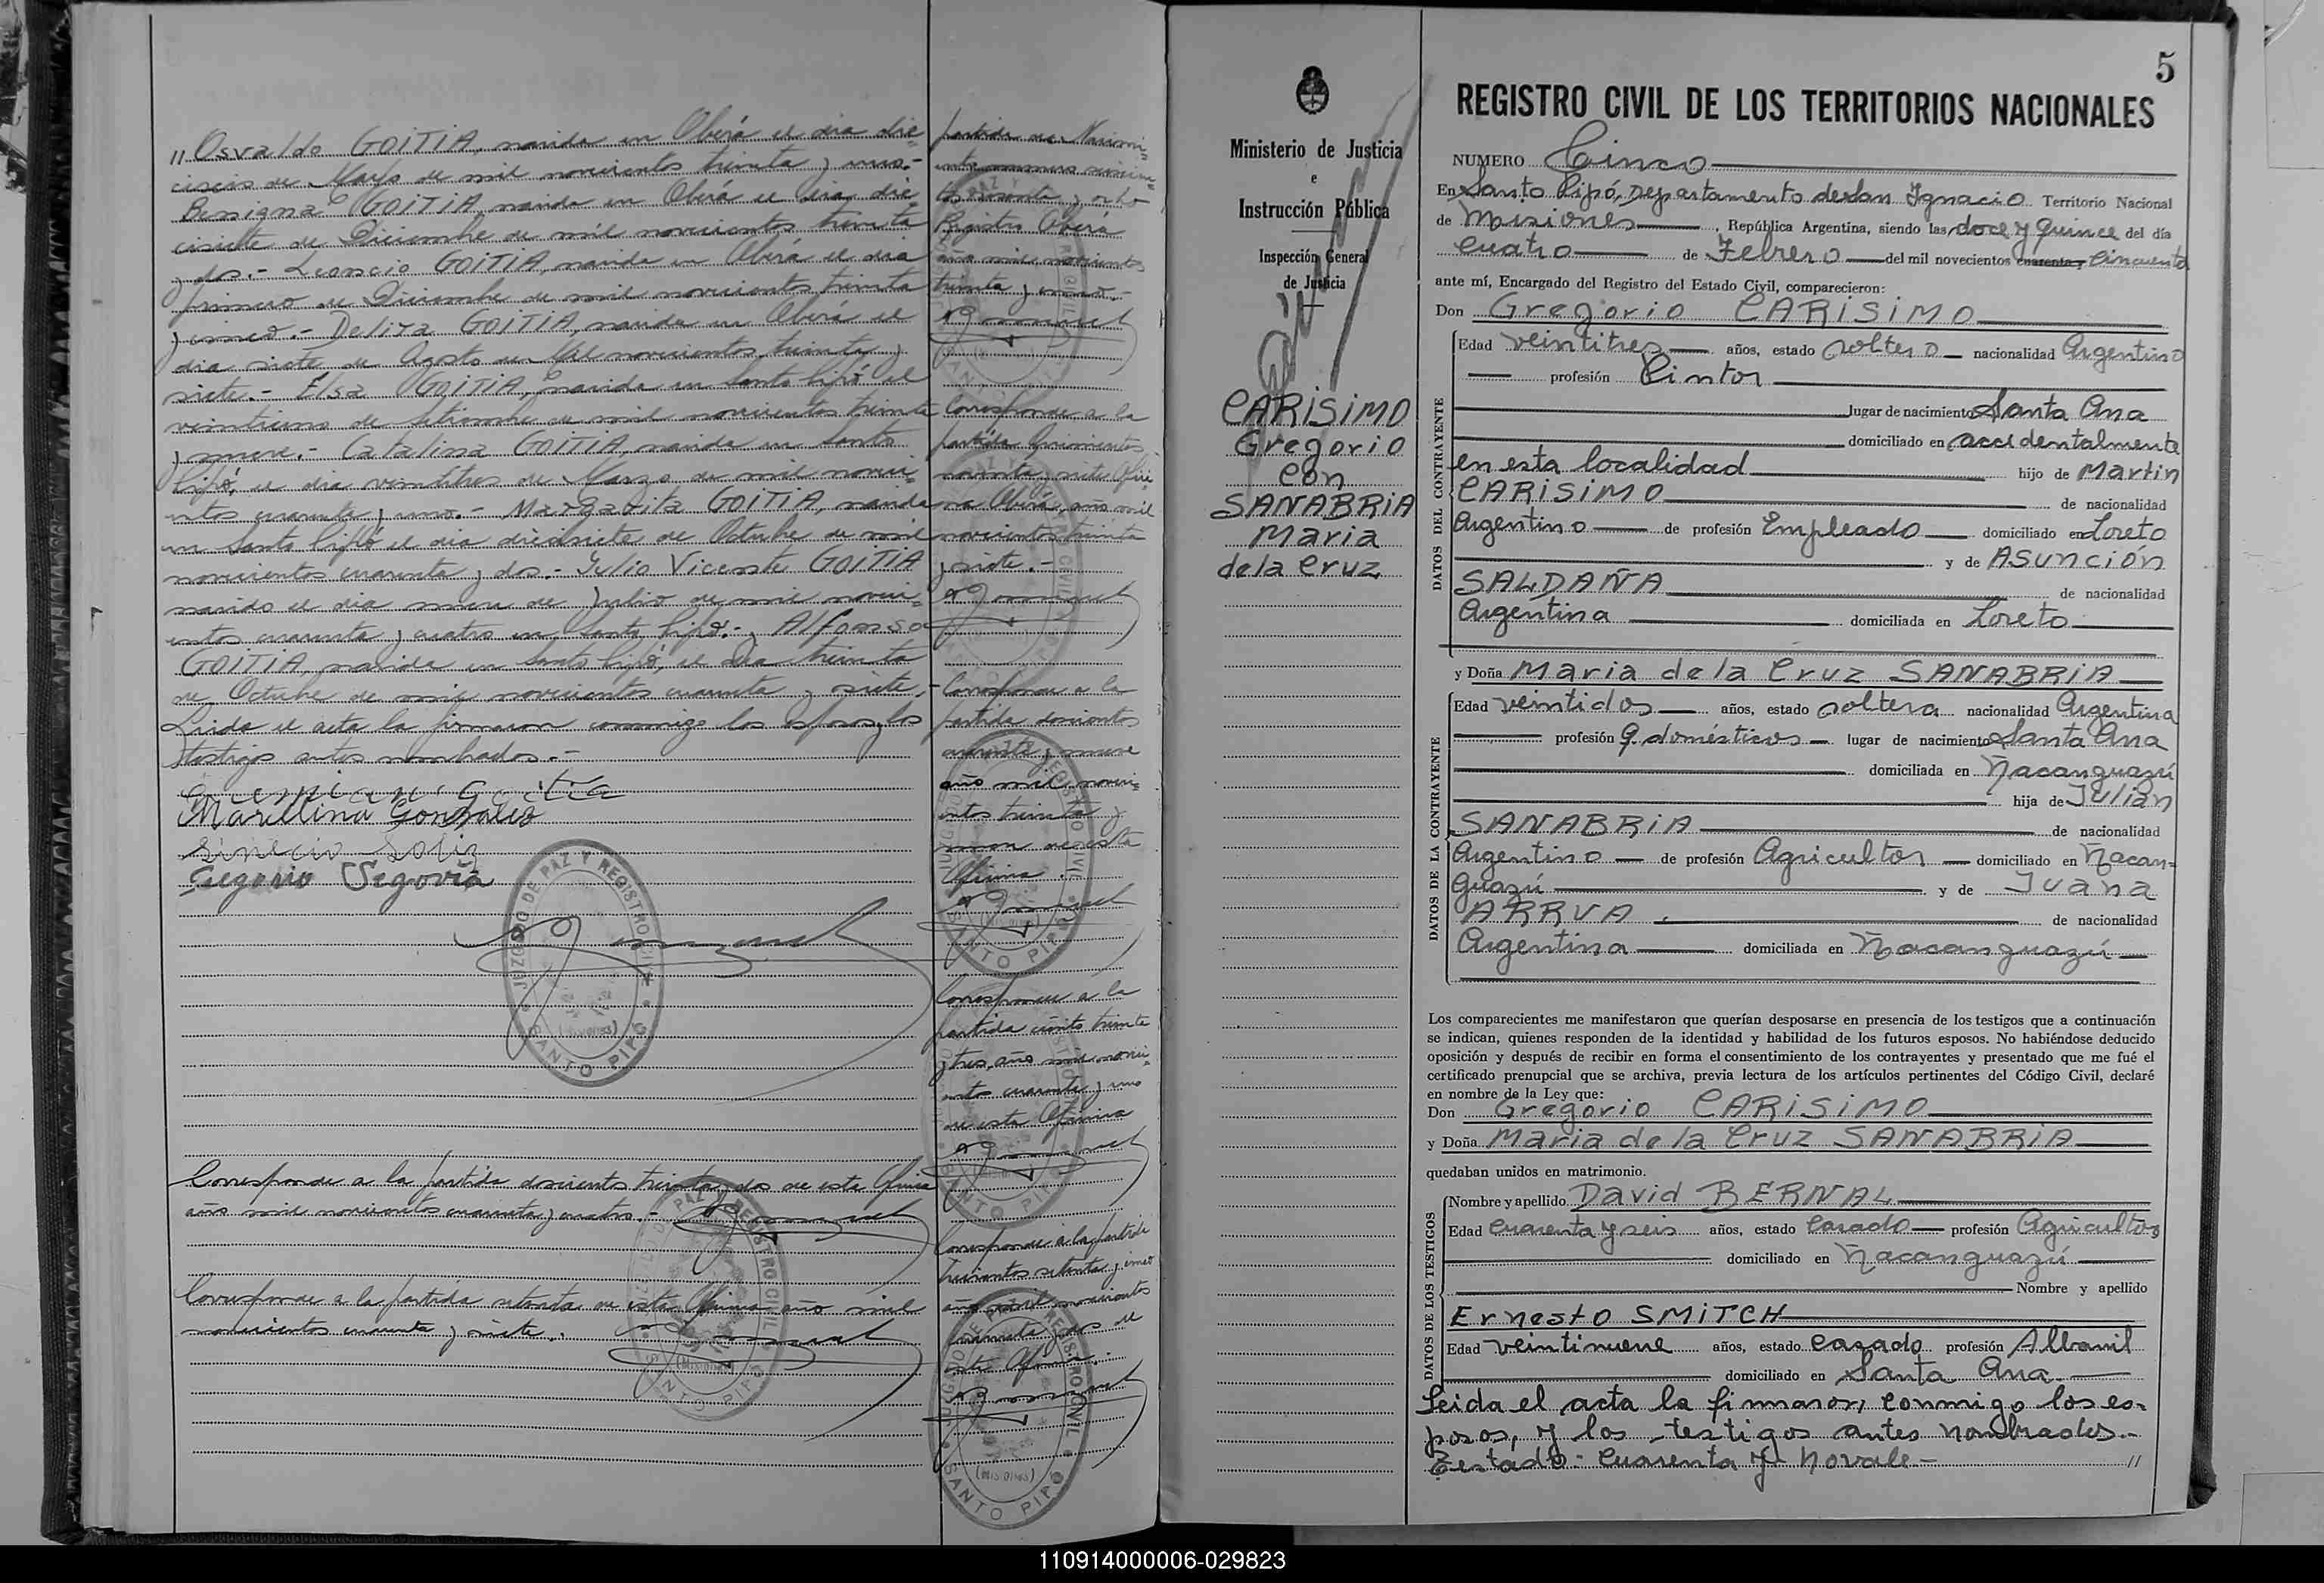 " Osvaldo GOITIA, nacido en Oberá el dia die=
ciseis de Mayo de mil novecientos treinta y uno.-
Benigna GOITIA, nacida en Oberá el dia die=
cisiete de Diciembre de mil novecientos treinta
y dos.- Leoncio GOITIA, nacido en Oberá el dia
primero de Diciembre de mil novecientos treinta
y cinco.- Deliza GOITIA, nacida en Oberá el
dia siete de Agosto de Mil novecientos treinta y
siete.- Elsa GOITIA, nacida en Santo Pipó el
veintiuno de Setiembre de mil novecientos treinta
y nueve.- Catalina GOITIA, nacida en Santo
Pipó, el dia veintitres de Marzo de mil nove=
cientos cuarenta y uno.- Margarita GOITIA, nacida
en Santo Pipó el dia diecisiete de Octubre de mil
novecientos cuarenta y dos.- Julio Vicente GOITIA
nacido el dia nueve de Julio de mil nove=
cientos cuarenta y cuatro en Santo Pipó.- y Alfonso
GOITIA, nacido en Santo Pipó, el Dia treinta
de Octubre de mil novecientos cuarenta y siete.-
Leida el acta la firmaron conmigo los Esposos y los
testigos antes nombrados.-
Goitia
Marcelina Gonzalez
Sinecio Soliz
Gregorio Segovia
JUZGADO DE PAZ Y REGISTRO CIVIL
(MISIONES)
SANTO PIPÓ
Corresponde a la partida doscientos treinta y dos de esta Oficina
año mil novecientos cuarenta y cuatro.-
Corresponde a la partida setenta de esta Oficina año mil
novecientos cuarenta y siete.
partida de Nacimi=
ento numero
sesenta y ocho
Registro Oberá
año mil novecientos
treinta y cinco.-
Corresponde a la
partida quinientos
noventa y siete Ofici=
na Oberá, año mil
novecientos treinta
y siete.-
Corresponde a la
partida doscientos
cuarenta y nueve
año mil nove=
cientos treinta y
nueve de esta
Oficina.
Corresponde a la
partida ciento treinta
y tres, año mil nove=
cientos cuarenta y uno
de esta Oficina
Corresponde a la partida
trescientos setenta y cinco
año mil novecientos
cuarenta y dos de
esta Oficina.-
5
Ministerio de Justicia
e
Instrucción Pública
Inspección General
de Justicia
CARISIMO
Gregorio
con
SANABRIA
Maria
de la Cruz
REGISTRO CIVIL DE LOS TERRITORIOS NACIONALES
NUMERO Cinco
En Santo Pipó, Departamento de San Ignacio Territorio Nacional
de Misiones, República Argentina, siendo las doce y quince del día
cuatro de Febrero del mil novecientos cuarenta y Cincuenta
ante mí, Encargado del Registro del Estado Civil, comparecieron:
Don Gregorio CARISIMO
DATOS DEL CONTRAYENTE
Edad veintitres años, estado soltero nacionalidad Argentino
profesión Pintor
lugar de nacimiento Santa Ana
domiciliado en accidentalmente
en esta localidad hijo de Martin
CARISIMO de nacionalidad
Argentino de profesión Empleado domiciliado en Loreto
y de ASUNCIÓN
SALDAÑA de nacionalidad
Argentina domiciliada en Loreto
y Doña Maria de la Cruz SANABRIA
DATOS DE LA CONTRAYENTE
Edad veintidos años, estado soltera nacionalidad Argentina
profesión Q. domésticos lugar de nacimiento Santa Ana
domiciliada en Ñacanguazú
hija de Julián
SANABRIA de nacionalidad
Argentino de profesión Agricultor domiciliado en Ñacan=
guazú y de Juana
ARRUA. de nacionalidad
Argentina domiciliada en Ñacanguazú
Los comparecientes me manifestaron que querían desposarse en presencia de los testigos que a continuación
se indican, quienes responden de la identidad y habilidad de los futuros esposos. No habiéndose deducido
oposición y después de recibir en forma el consentimiento de los contrayentes y presentado que me fué el
certificado prenupcial que se archiva, previa lectura de los artículos pertinentes del Código Civil, declaré
en nombre de la Ley que:
Don Gregorio CARISIMO
y Doña Maria de la Cruz SANABRIA
quedaban unidos en matrimonio.
DATOS DE LOS TESTIGOS
Nombre y apellido David BERNAL
Edad cuarenta y seis años, estado Casado profesión Agricultor
domiciliado en Ñacanguazú
Nombre y apellido
Ernesto SMITCH
Edad veintinueve años, estado casado profesión Albanil
domiciliado en Santa Ana.
Leida el acta la firmaron, conmigo los es-
posos, y los testigos antes nombrados.-
Testado: cuarenta y No vale- "
110914000006-029823